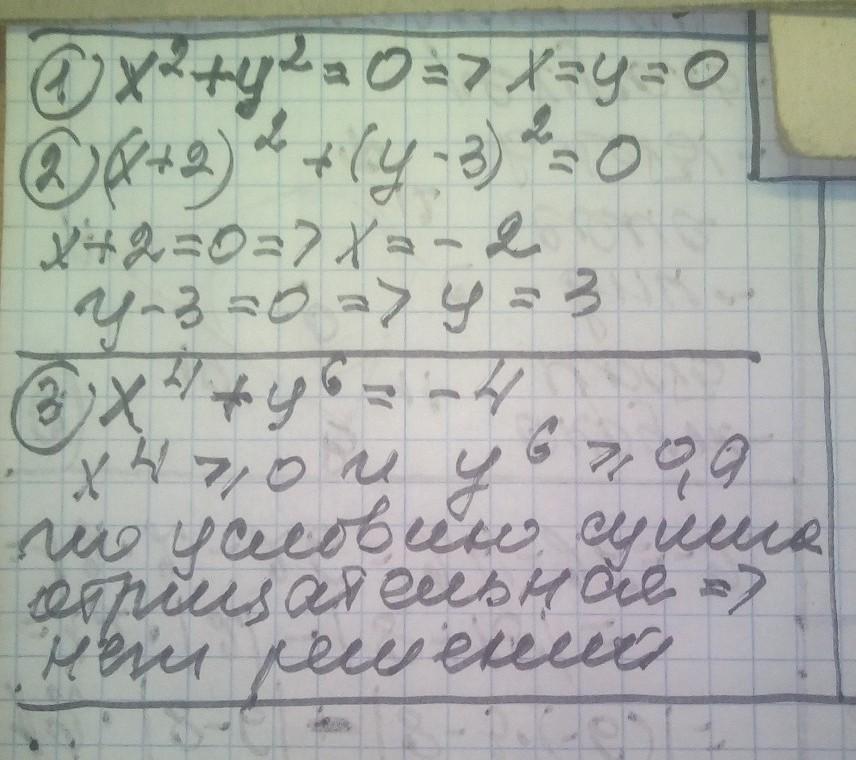 ① x² + y² = 0 => x = y = 0
② (x+2)² + (y-3)² = 0
x+2=0 => x = -2
y-3=0 => y = 3
③ x⁴ + y⁶ = -4
x⁴ ⩾ 0 и y⁶ ⩾ 0, а
по условию сумма
отрицательная =>
нет решений